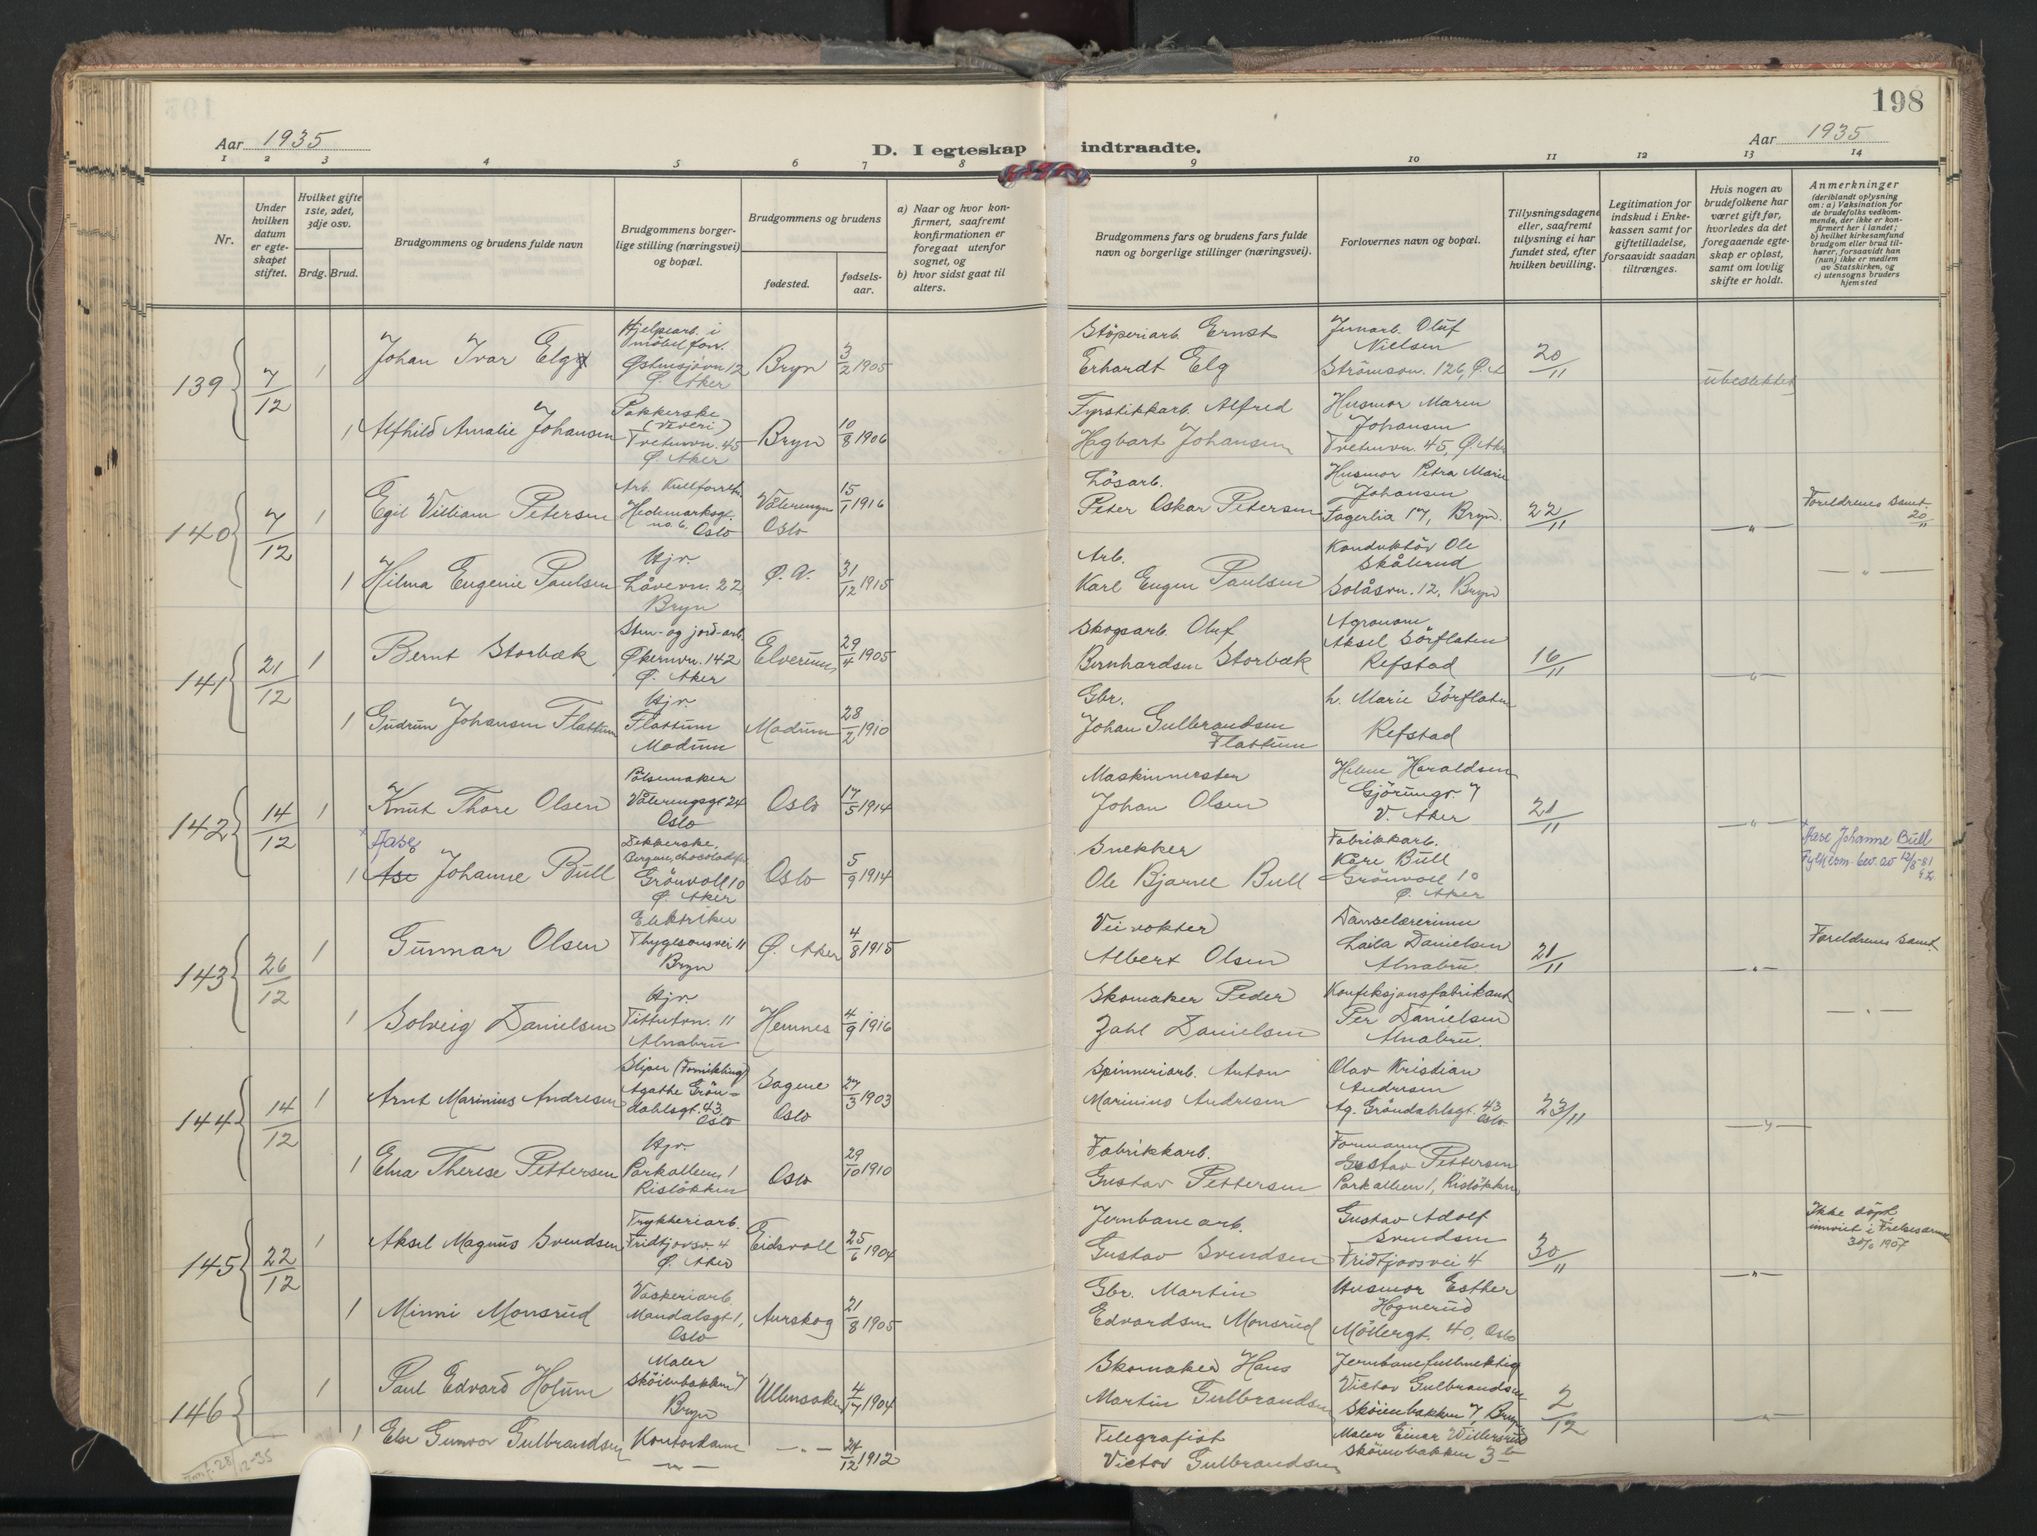 198
Aar 1935
D. I egteskap indtraadte.
Aar 1935
1 2 3 4 5 6 7 8 9 10 11 12 13 14
Nr.
Under hvilken datum er egteskapet stiftet.
Hvilket gifte 1ste, 2det, 3dje osv.
Brdg. Brud.
Brudgommens og brudens fulde navn
Brudgommens borgerlige stilling (næringsvei) og bopæl.
Brudgommens og brudens
fødested. fødselsaar.
a) Naar og hvor konfirmert, saafremt konfirmationen er foregaat utenfor sognet, og
b) hvor sidst gaat til alters.
Brudgommens fars og brudens fars fulde navn og borgerlige stillinger (næringsvei).
Forlovernes navn og bopæl.
Tillysningsdagene eller, saafremt tillysning ei har fundet sted, efter hvilken bevilling.
Legitimation for indskud i Enkekassen samt for giftetilladelse, forsaavidt saadan tiltrænges.
Hvis nogen av brudefolkene har været gift før, hvorledes da det foregaaende egteskap er opløst, samt om lovlig skifte er holdt.
Anmerkninger (deriblandt oplysning om: a) Vaksination for de brudefolks vedkommende, der ikke er konfirmert her i landet; b) hvilket kirkesamfund brudgom eller brud tilhører, forsaavidt han (hun) ikke er medlem av Statskirken, og c) utensogns bruders hjemsted
139 7/12 1 Johan Ivar Elg Hjelpearb. i møbelforr. Østensjøvn 12 Ø. Aker Bryn 3/2 1905 Støperiarb. Ernst Erhardt Elg Jernarb. Oluf Nielsen Strömsvn. 126, Ø.A 20/11 ubeslektet
1 Alfhild Amalie Johansen Pakkerske (veveri) Tvetenvn. 45 Ø. Aker Bryn 10/8 1906 Fyrstikkarb. Alfred Hagbart Johansen Husmor Maren Johansen Tvetenvn. 45, Ø. Aker
140 7/12 1 Egil William Petersen Arb. Kullforretn. Hedemarksgt. no. 6, Oslo Vålerengen Oslo 15/1 1916 Lösarb. Peter Oskar Petersen Husmor Petra Marie Johansen Fagerlia 17, Bryn. 22/11 — " — Foreldrenes samt. 20/11
1 Hilma Eugenie Paulsen Hjv. Låvevn. 22 Bryn Ø. A. 31/12 1915 Arb. Karl Eugen Paulsen Konduktör Ole Skålerud Solåsvn. 12, Bryn — " —
141 21/12 1 Bernt Storbæk Sten- og jord-arb. Økernvn. 142 Ø. Aker Elverum 29/4 1905 Skogsarb. Oluf Bernhardsen Storbæk Agronom Aksel Sörflaten Refstad 16/11 — " —
1 Gudrun Johansen Flattum Hjv. Flattum Modum Modum 28/2 1910 Gbr. Johan Gulbrandsen Flattum h. Marie Sörflaten Refstad
142 14/12 1 Knut Thore Olsen Pölsemaker Våleringsgt 24 Oslo Oslo 17/5 1914 Maskinmester Johan Olsen Helene Haraldsen V. Aker 21/11 — " —
1 Aase Ase Johanne Bull Dekkerske, Bergene chocoladefa. Grönvoll 10 Ø. Aker Oslo 5/9 1914 Snekker Ole Bjarne Bull Fabrikkarb. Kåre Bull Grönvoll 10 Ø. Aker x Aase Johanne Bull Fylkesm. bev. av 12/5-81
143 26/12 1 Gunnar Olsen Elektriker Thygesonsvei 11 Bryn Ø. Aker 4/8 1915 Veivokter Albert Olsen Danselærerinne Laila Danielsen Alnabru 21/11 — " — Foreldrenes samt.
1 Solveig Danielsen Hjv. Tittutvn. 11 Alnabru Hemnes 4/9 1916 Skomaker Peder Zahl Danielsen Konfeksjonsfabrikant Per Danielsen Alnabru. — " —
144 14/12 1 Arnt Marinius Andresen Sliper (Fornikling) Agathe Gröndahlsgt. 43 Oslo Sagene Oslo 27/3 1903 Spinneriarb. Anton Marinius Andresen Olav Kristian Andresen Ag. Gröndahlsgt. 43 Oslo 23/11 — " —
1 Elna Therese Pettersen Hjv. Parkalleen 1 Risløkken Oslo 29/10 1910 Fabrikkarb. Gustav Pettersen Formann Gustav Pettersen Parkalleen 1, Risløkken
145 22/12 1 Aksel Magnus Svendsen Trykkeriarb. Fridtjovsv. 4 Ø. Aker Eidsvoll 25/6 1904 Jernbanearb. Gustav Svendsen Gustav Adolf Svendsen Fridtjovsvei 4 30/11 — " — Ikke döpt, innviet i Frelsesarmé 1907
1 Minni Monsrud Vaskeriarb. Mandalsgt 1, Oslo Aurskog 21/8 1905 Gbr. Martin Edvardsen Monsrud Husmor Esther Hognerud Möllergt. 40, Oslo
146 1 Paul Edvard Holum Maler Skøienbakken 7 Bryn Ullensaker 4/7 1904 Skomaker Hans Martin Gulbrandsen Jernbanefullmektig Victor Gulbrandsen Skøienbakken 7, Bryn 2/12 — " —
1 Else Gunvor Gulbrandsen Kontordame — " — — " — 24/12 1912 Telegrafist Victor Gulbrandsen Maler Einar Willersrud Skøienbakken 3b
28/12-35